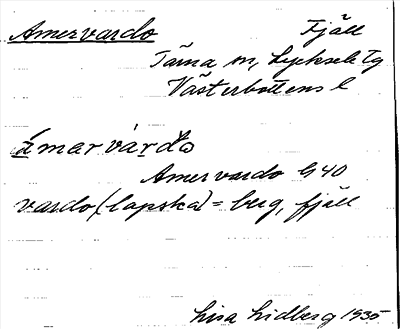 Amervardo Fjäll
Tärna sn, Lycksele tg
Västerbottens l
Amervardo G40
vardo (lapska) = berg, fjäll
Lisa Lidberg 1935